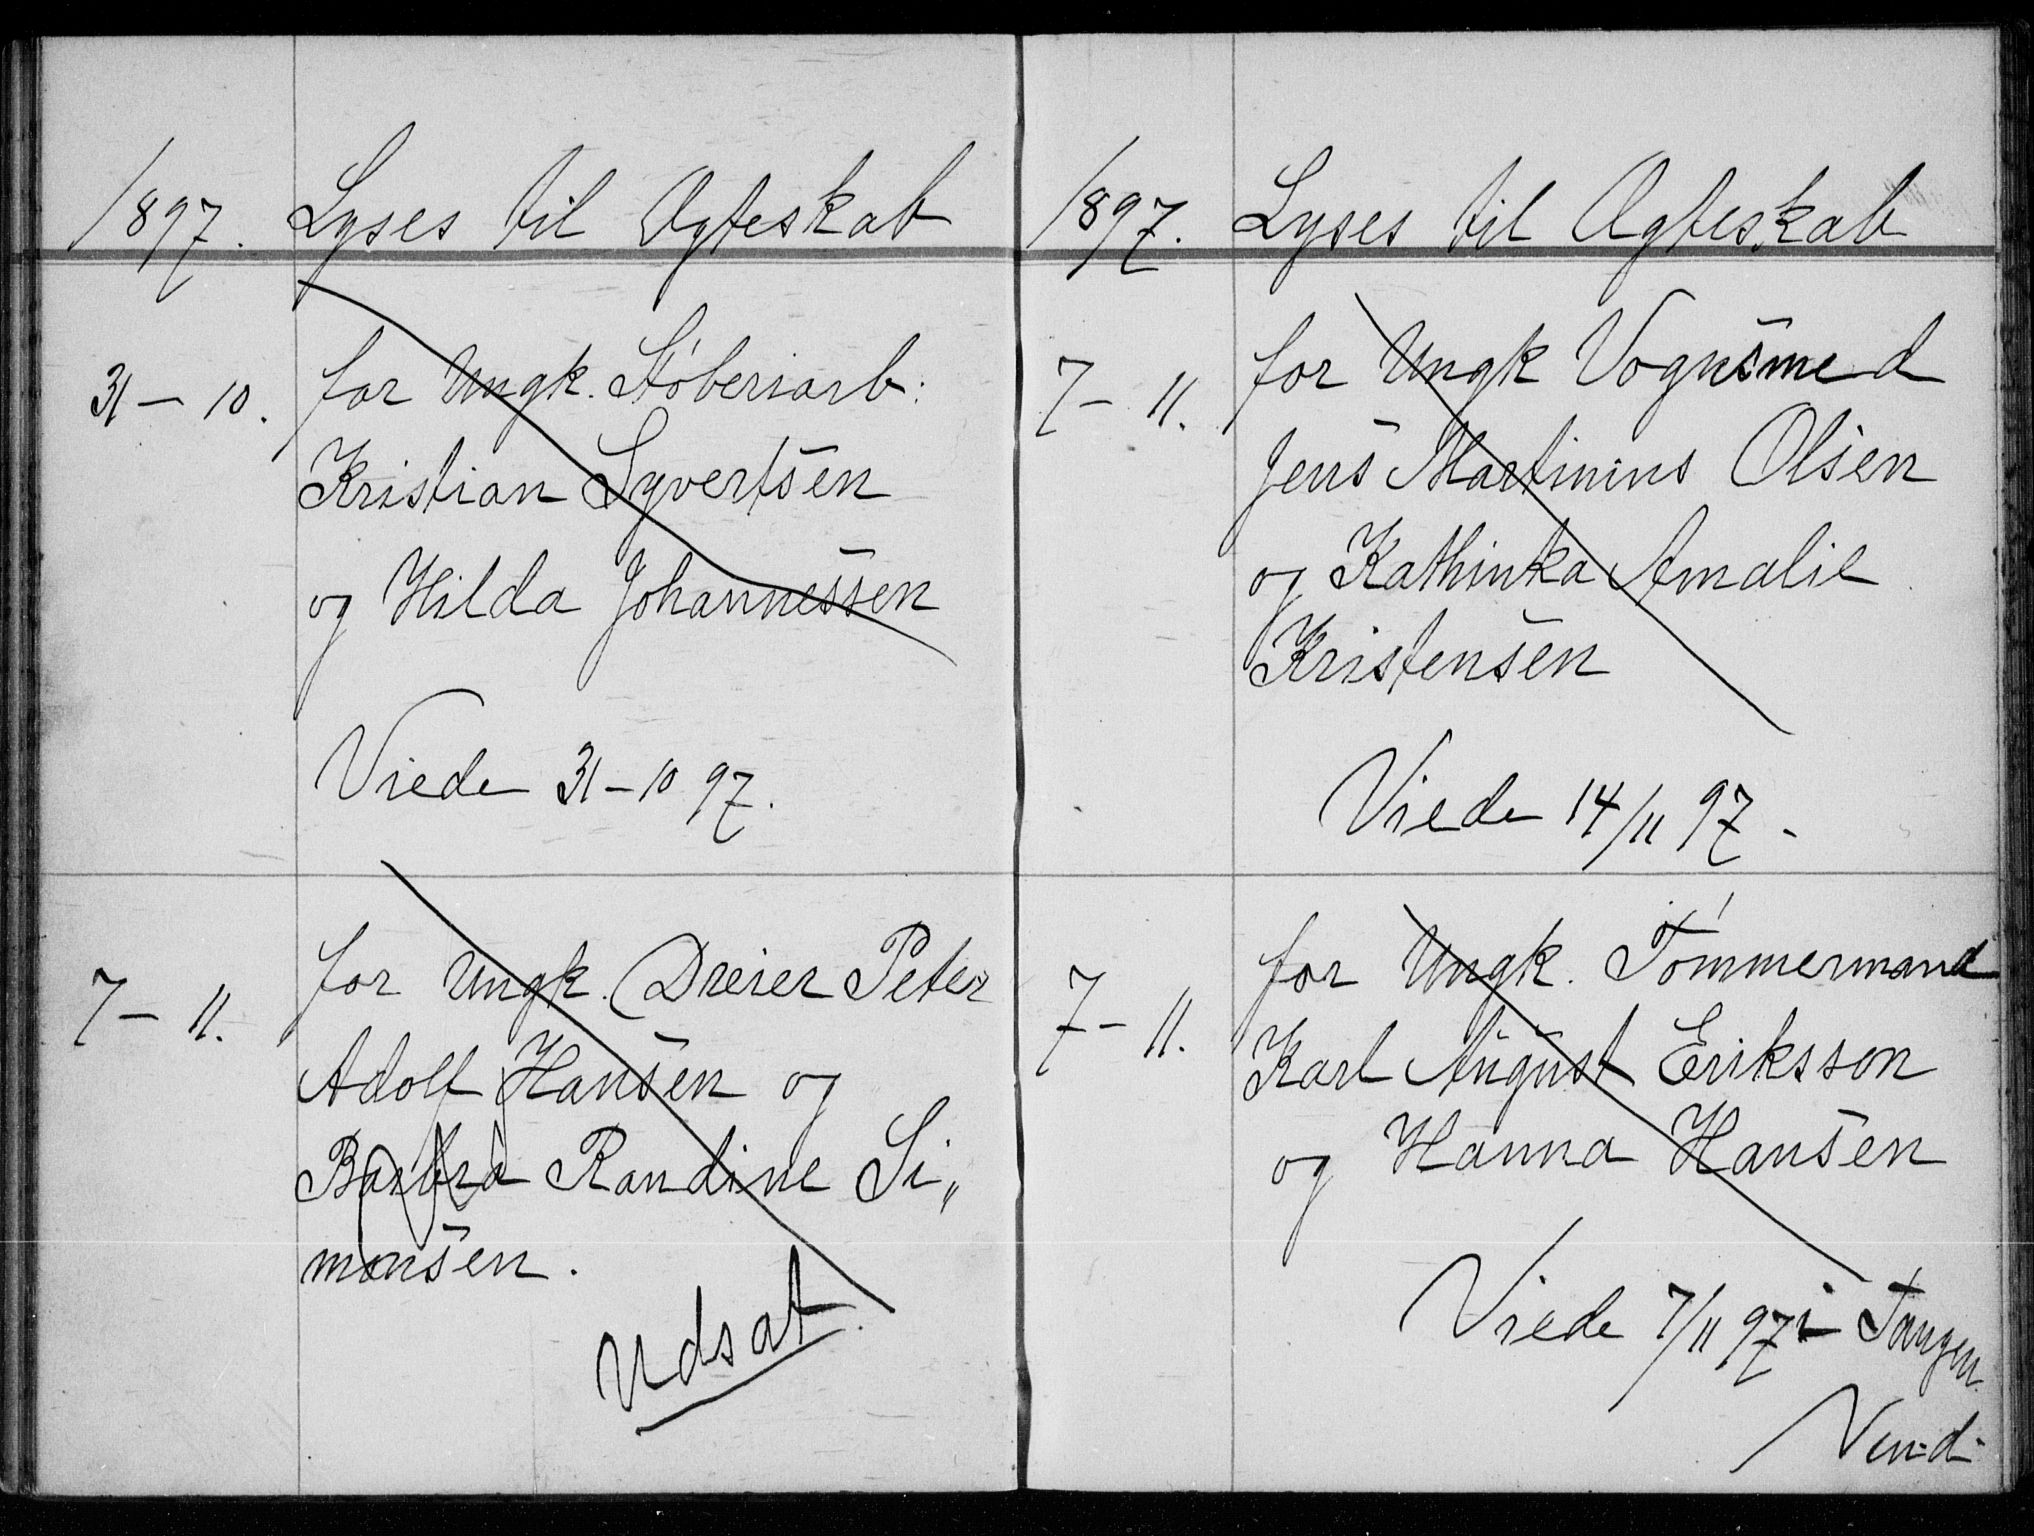 1897. Lyses til Ægteskab
31 - 10. for Ungk. Støberiarb:
Kristian Syvertsen
og Hilda Johannessen
Viede 31 - 10 97.
7 - 11. for Ungk. Dreier Peter
Adolf Hansen og
Barbra Randine Si„
monsen.
Udsat.
1897. Lyses til Ægteskab
7 - 11. for Ungk Vognsmed
Jens Martinius Olsen
og Kathinka Amalie
Kristensen
Viede 14/11 97 -
7 - 11. for Ungk. Tömmermand
Karl August Eriksson
og Hanna Hansen
Viede 7/11 97 i Tangen.
Vend